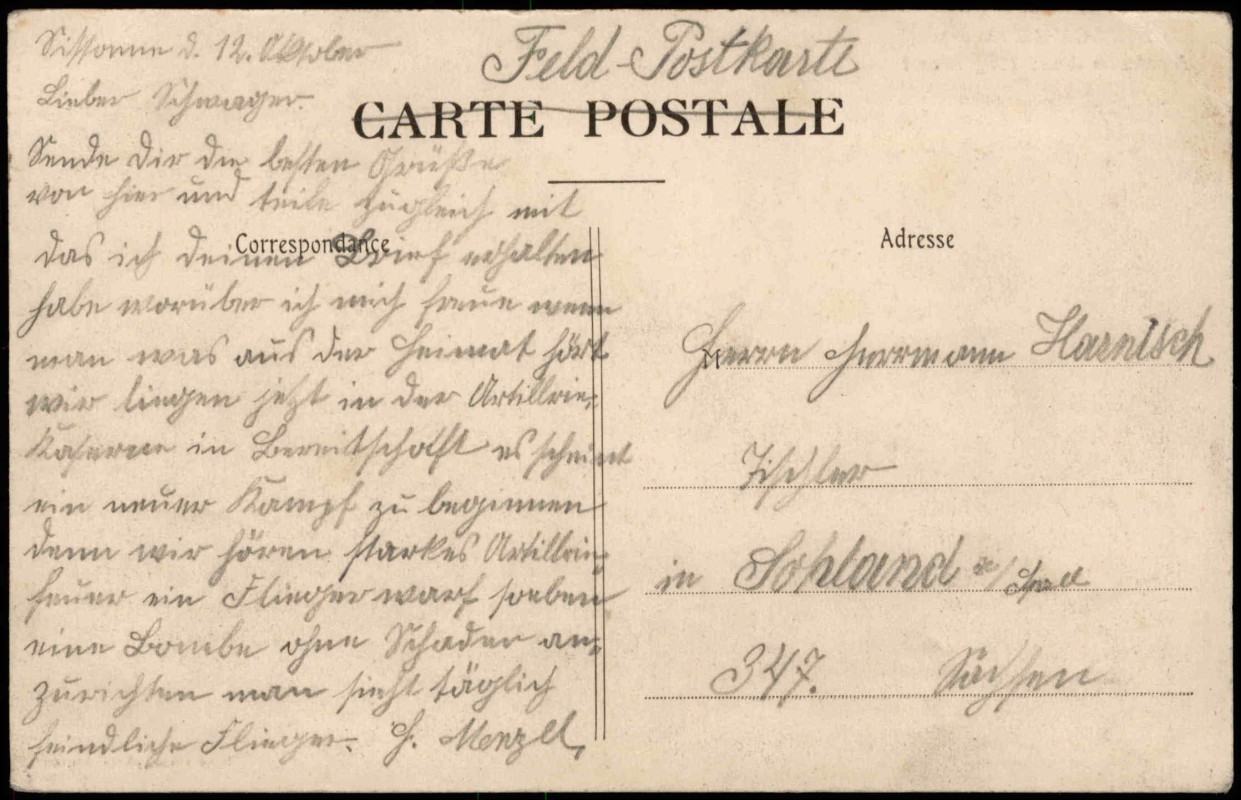 Feld-Postkarte
CARTE POSTALE
Sissonne d. 12. Oktober
Lieber Schwager.
Sende Dir die besten Grüße
von hier und teile zugleich mit
das ich deinen Brief erhalten
habe worüber ich mich freue wenn
man was aus der Heimat hört
wir liegen jetzt in der Artillrie-
Kaserne in Bereitschafft es scheint
ein neuer Kampf zu beginnen
denn wir hören starkes Artillrie-
feuer ein Flieger warf soeben
eine Bombe ohne Schaden an-
zurichten man sieht täglich
feindliche Flieger. H. Menzel,
Correspondance
Adresse
M
Herrn Herrmann Harnisch
Tischler
in Sohland a/Spree
347. Sachsen